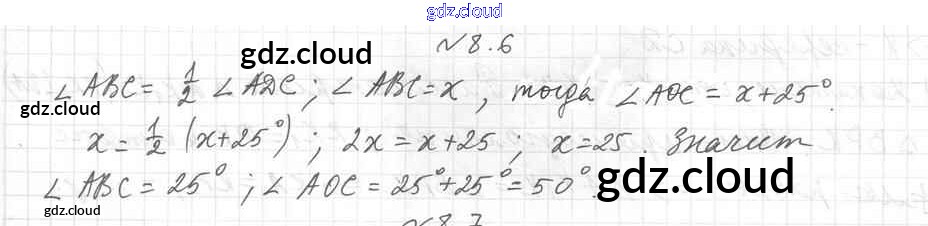 gdz.cloud
№8.6
gdz.cloud
∠ABC = 1/2 ∠ADC; ∠ABC = x, тогда ∠AOC = x+25°.
gdz.cloud
x = 1/2 (x+25°); 2x = x+25; x=25. Значит
∠ABC = 25°; ∠AOC = 25°+25°=50°.
gdz.cloud
gdz.cloud
№8.7